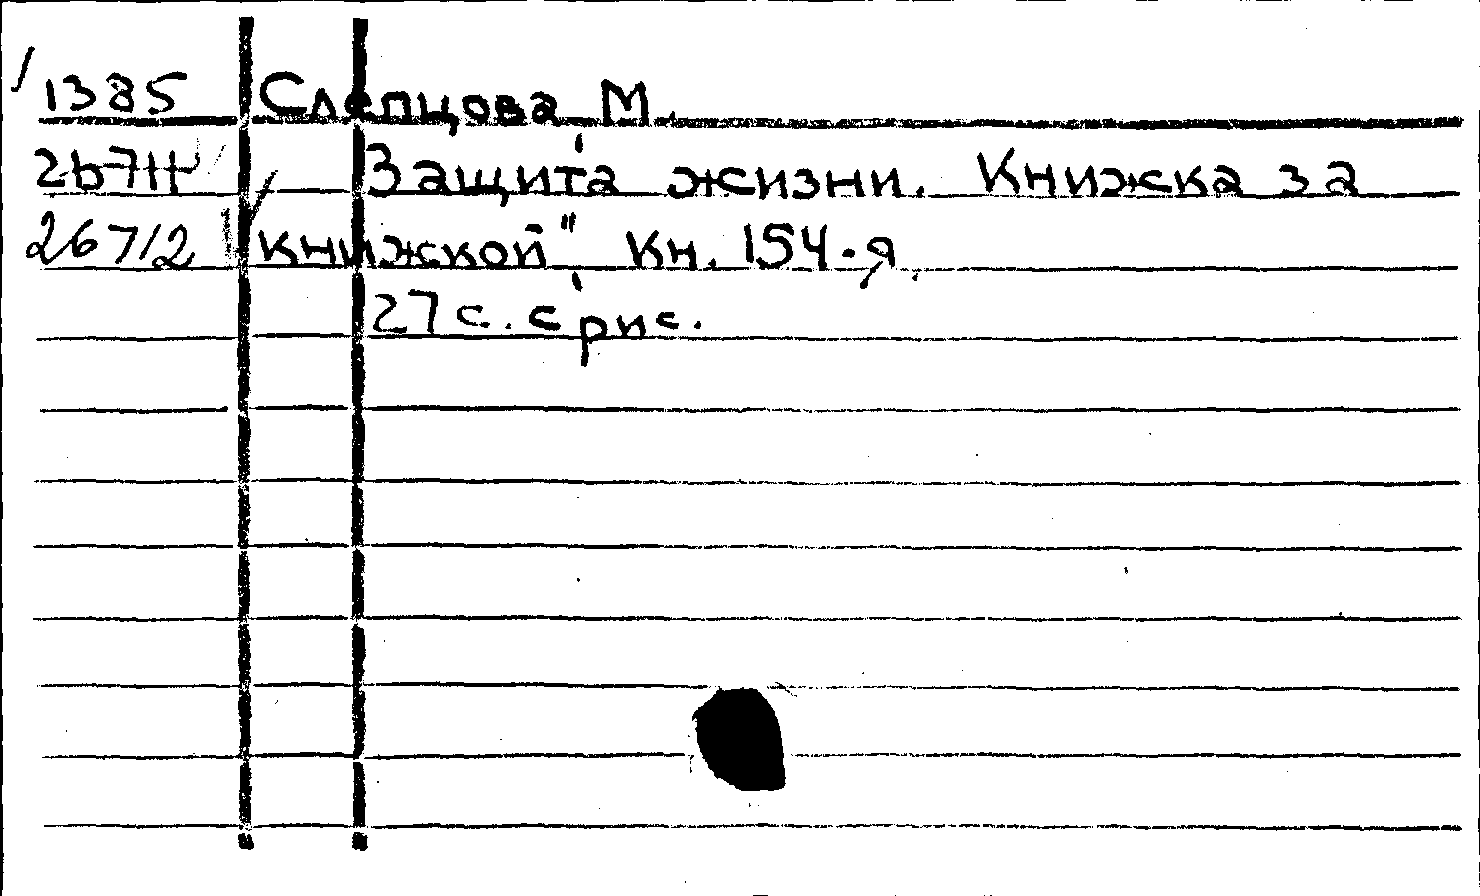 1385 Слепцова М.
Защита жизни. Книжка за
267/2 книжкой" Кн. 154-я
27 с. с рис.